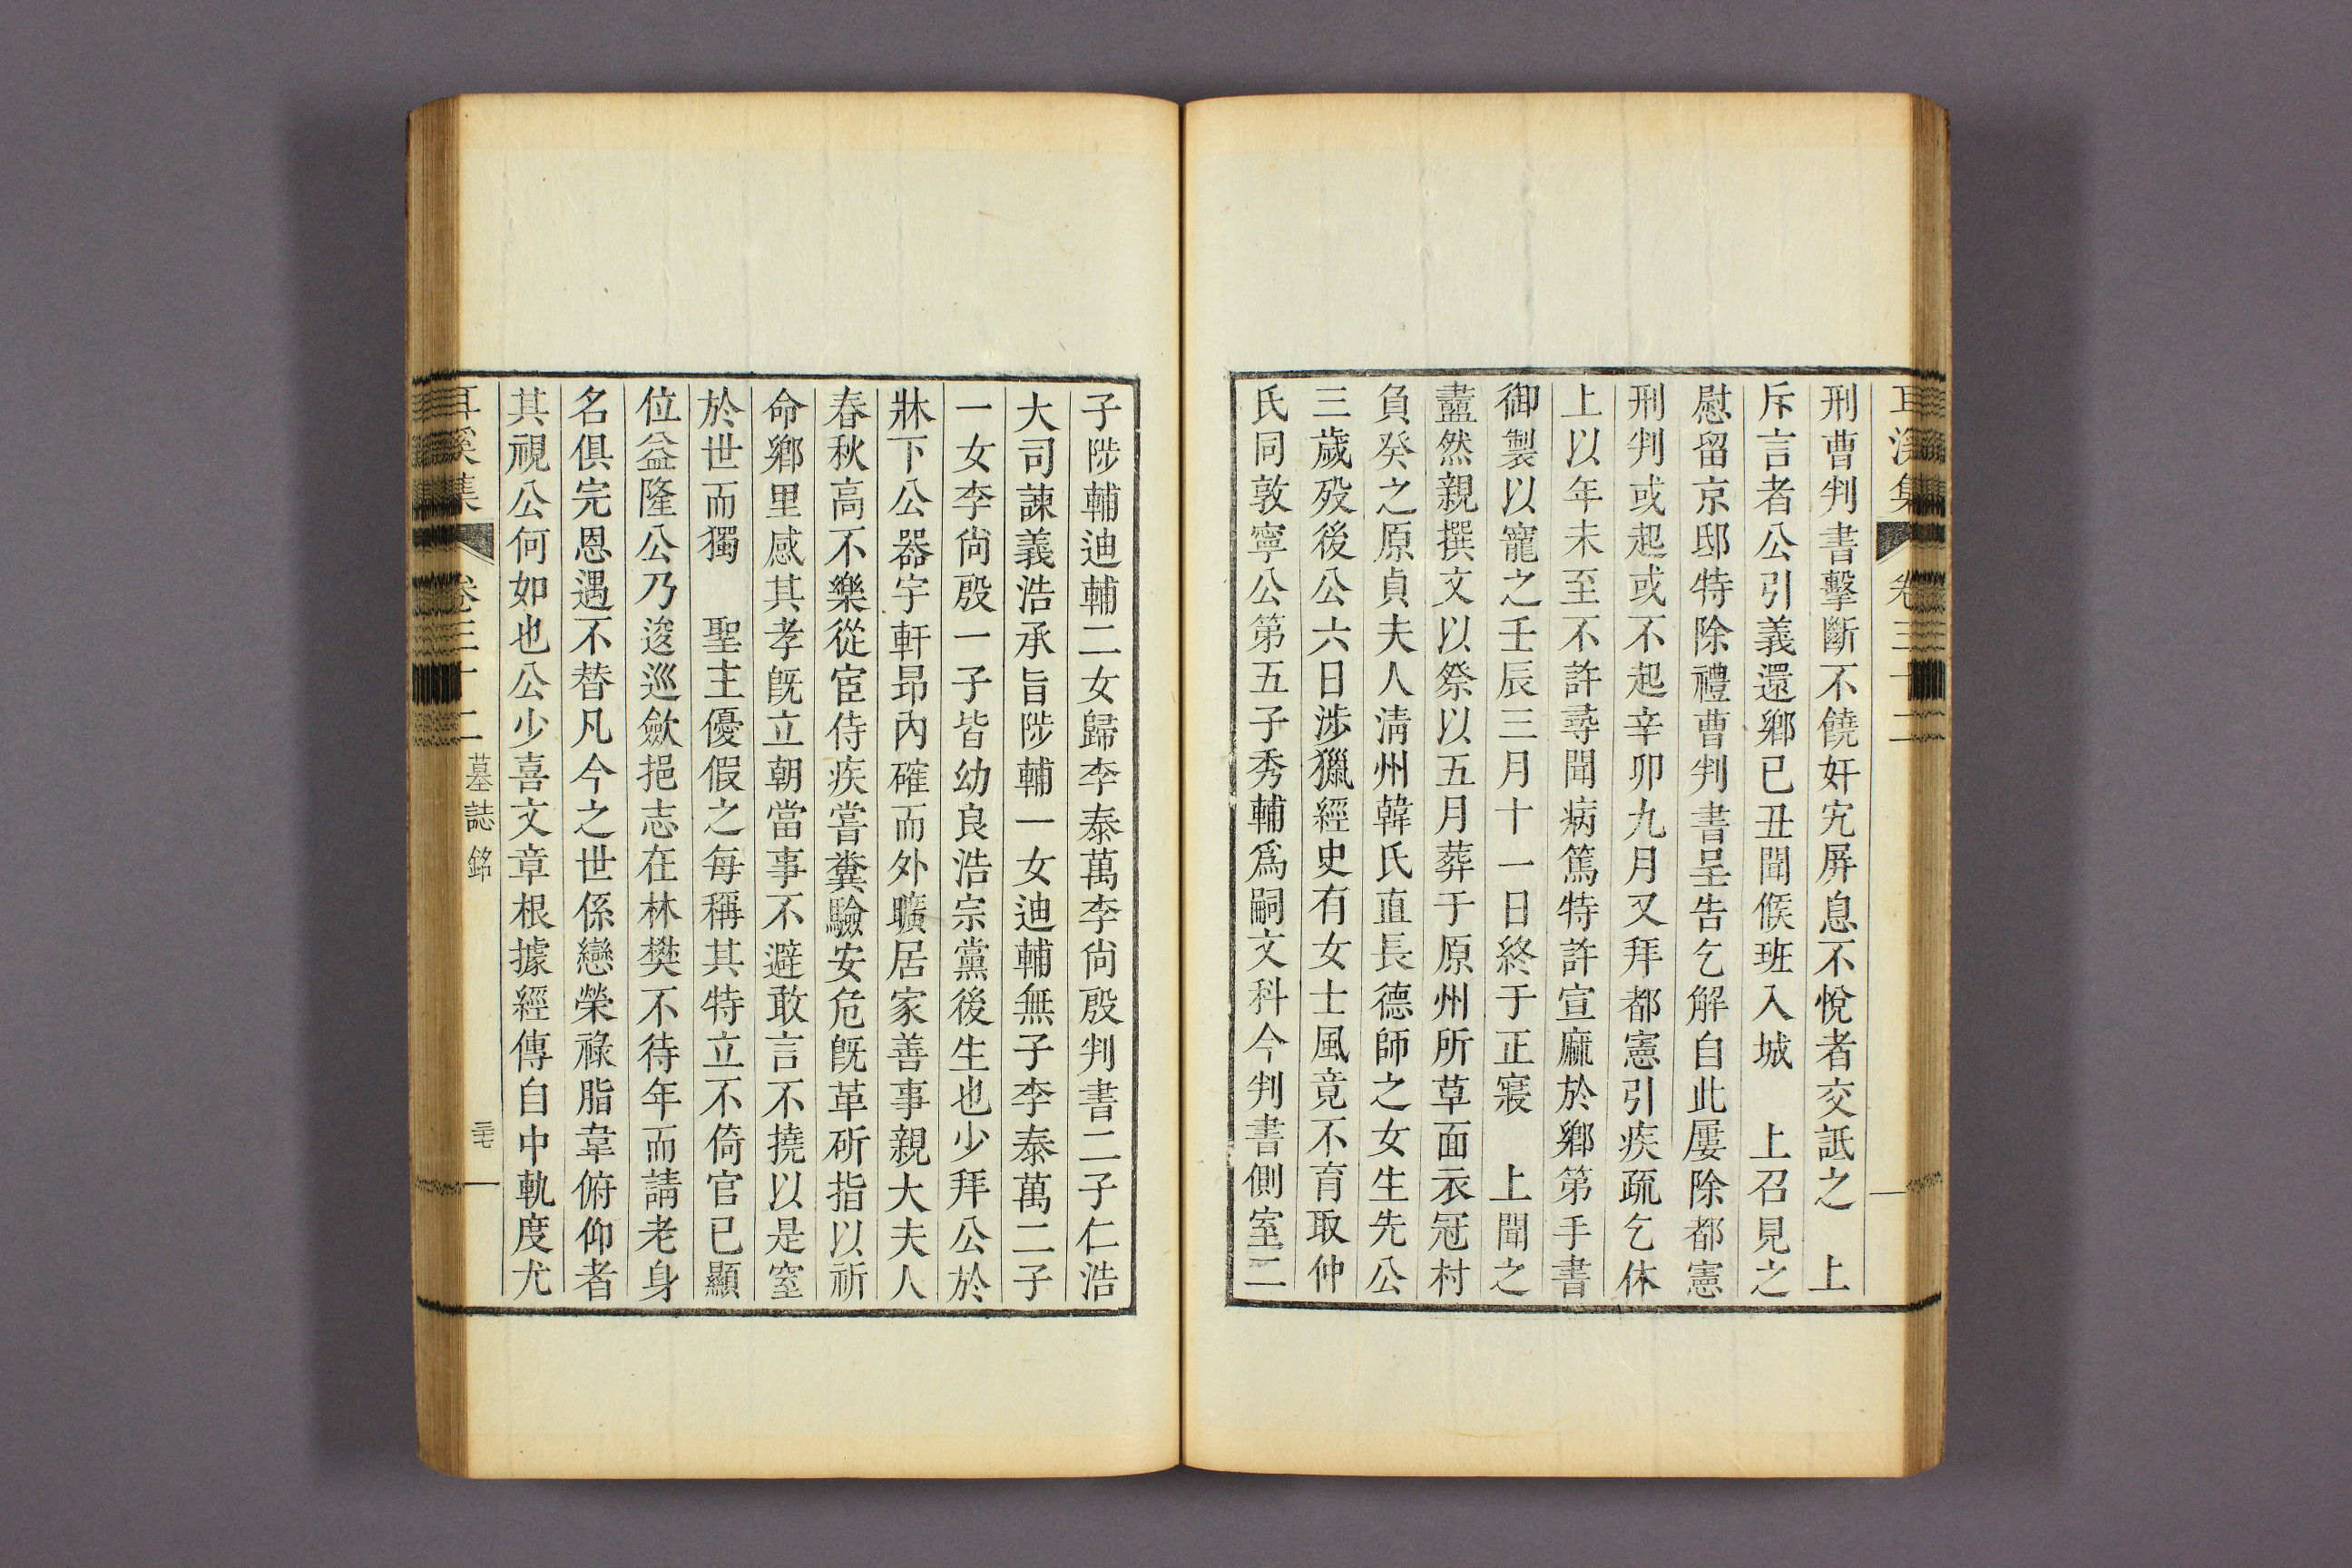 耳溪集 卷三十二
刑曹判書擊斷不饒奸宄屏息不悅者交詆之 上
斥言者公引義還鄉已丑聞候班入城 上召見之
慰留京邸特除禮曹判書呈告乞解自此屢除都憲
刑判或起或不起辛卯九月又拜都憲引疾疏乞休
上以年未至不許尋聞病篤特許宣麻於鄉第手書
御製以寵之壬辰三月十一日終于正寢 上聞之
衋然親撰文以祭以五月葬于原州所草面衣冠村
負癸之原貞夫人淸州韓氏直長德師之女生先公
三歲歿後公六日涉獵經史有女士風竟不育取仲
氏同敦寧公第五子秀輔爲嗣文科今判書側室二
子陟輔迪輔二女歸李泰萬李尙殷判書二子仁浩
大司諫義浩承旨陟輔一女迪輔無子李泰萬二子
一女李尙殷一子皆幼良浩宗黨後生也少拜公於
牀下公器宇軒昻內確而外曠居家善事親大夫人
春秋高不樂從宦侍疾嘗糞驗安危旣革斫指以祈
命鄉里感其孝旣立朝當事不避敢言不撓以是窒
於世而獨 聖主優假之每稱其特立不倚官已顯
位益隆公乃逡巡歛挹志在林樊不待年而請老身
名俱完恩遇不替凡今之世係戀榮祿脂韋俯仰者
其視公何如也公少喜文章根據經傳自中軌度尤
耳溪集 卷三十二 墓誌銘